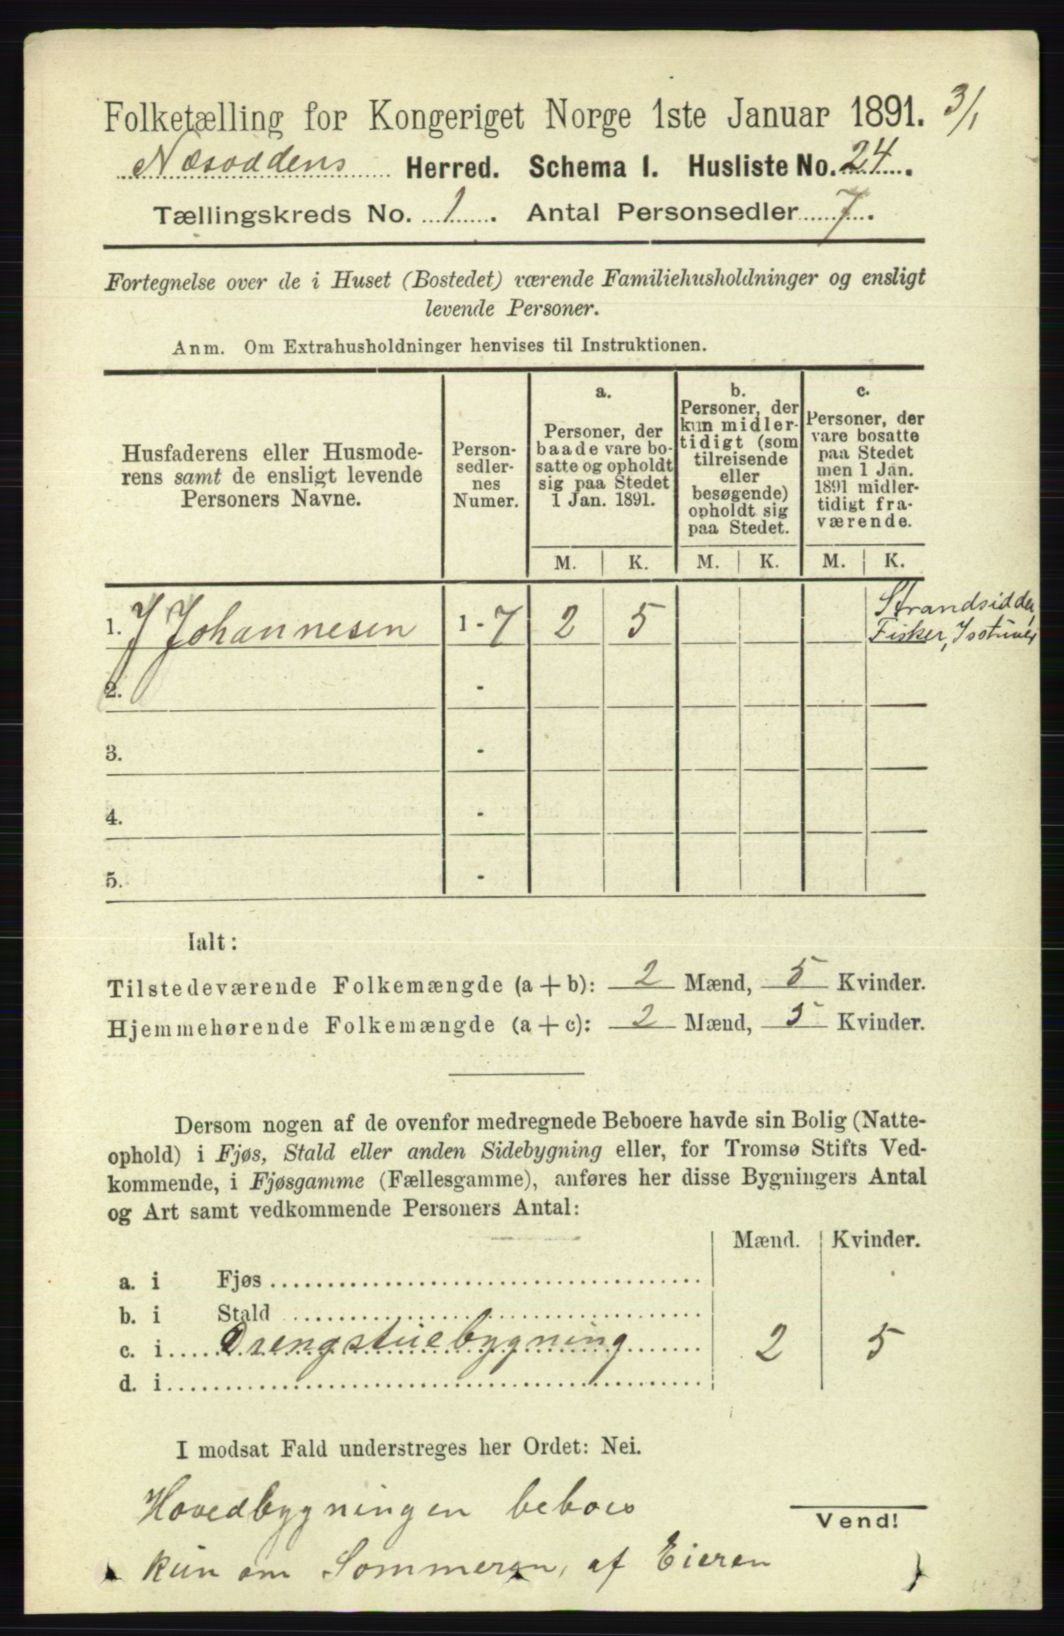 Folketælling for Kongeriget Norge 1ste Januar 1891. 3/1
Næsoddens Herred. Schema I. Husliste No. 24.
Tællingskreds No. 1. Antal Personsedler 7.
Fortegnelse over de i Huset (Bostedet) værende Familiehusholdninger og ensligt
levende Personer.
Anm. Om Extrahusholdninger henvises til Instruktionen.
Husfaderens eller Husmode-
rens samt de ensligt levende
Personers Navne.
Person-
sedler-
nes
Numer.
a.
Personer, der
baade vare bo-
satte og opholdt
sig paa Stedet
1 Jan. 1891.
b.
Personer, der
kun midler-
tidigt (som
tilreisende
eller
besøgende)
opholdt sig
paa Stedet.
c.
Personer, der
vare bosatte
paa Stedet
men 1 Jan.
1891 midler-
tidigt fra-
værende.
M. K. M. K. M. K.
1. J Johannesen 1 - 7 2 5 Strandsidder,
Fisker,
2. -
3. -
4. -
5. -
Ialt:
Tilstedeværende Folkemængde (a + b): 2 Mænd, 5 Kvinder.
Hjemmehørende Folkemængde (a + c): 2 Mænd, 5 Kvinder.
Dersom nogen af de ovenfor medregnede Beboere havde sin Bolig (Natte-
ophold) i Fjøs, Stald eller anden Sidebygning eller, for Tromsø Stifts Ved-
kommende, i Fjøsgamme (Fællesgamme), anføres her disse Bygningers Antal
og Art samt vedkommende Personers Antal:
Mænd. Kvinder.
a. i Fjøs
b. i Stald
c. i Drengstuebygning 2 5
d. i
I modsat Fald understreges her Ordet: Nei.
Hovedbygningen beboes
Vend!
kun om Sommeren, af Eieren